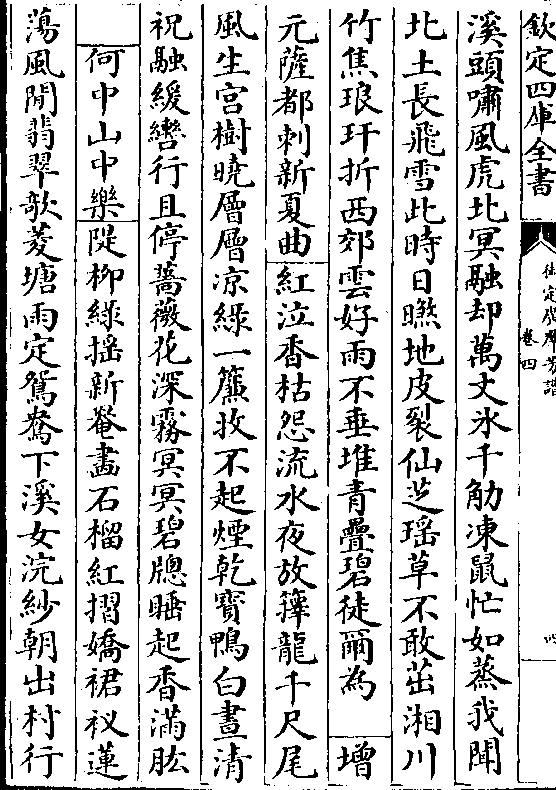 欽定四庫全書
御定佩文齋廣羣芳譜
卷四
四
溪頭嘯風虎北冥融却萬丈氷千觔凍鼠忙如蒸我聞
北土長飛雪此時日㬠地皮裂仙芝瑶草不敢茁湘川
竹焦琅玕折西郊雲好雨不垂堆青疊碧徒爾為 增
元薩都刺新夏曲 紅泣香枯怨流水夜放籜龍千尺尾
風生宮樹曉層層凉綠一簾扶不起煙乾寳鴨白晝清
祝融緩轡行且停薔薇花深霧冥冥碧牕睡起香滿肱
何中山中樂 隄柳綠揺新菴畫石榴紅摺嬌裙衩蓮
蕩風閒翡翠歌菱塘雨定鴛鴦下溪女浣紗朝出村行